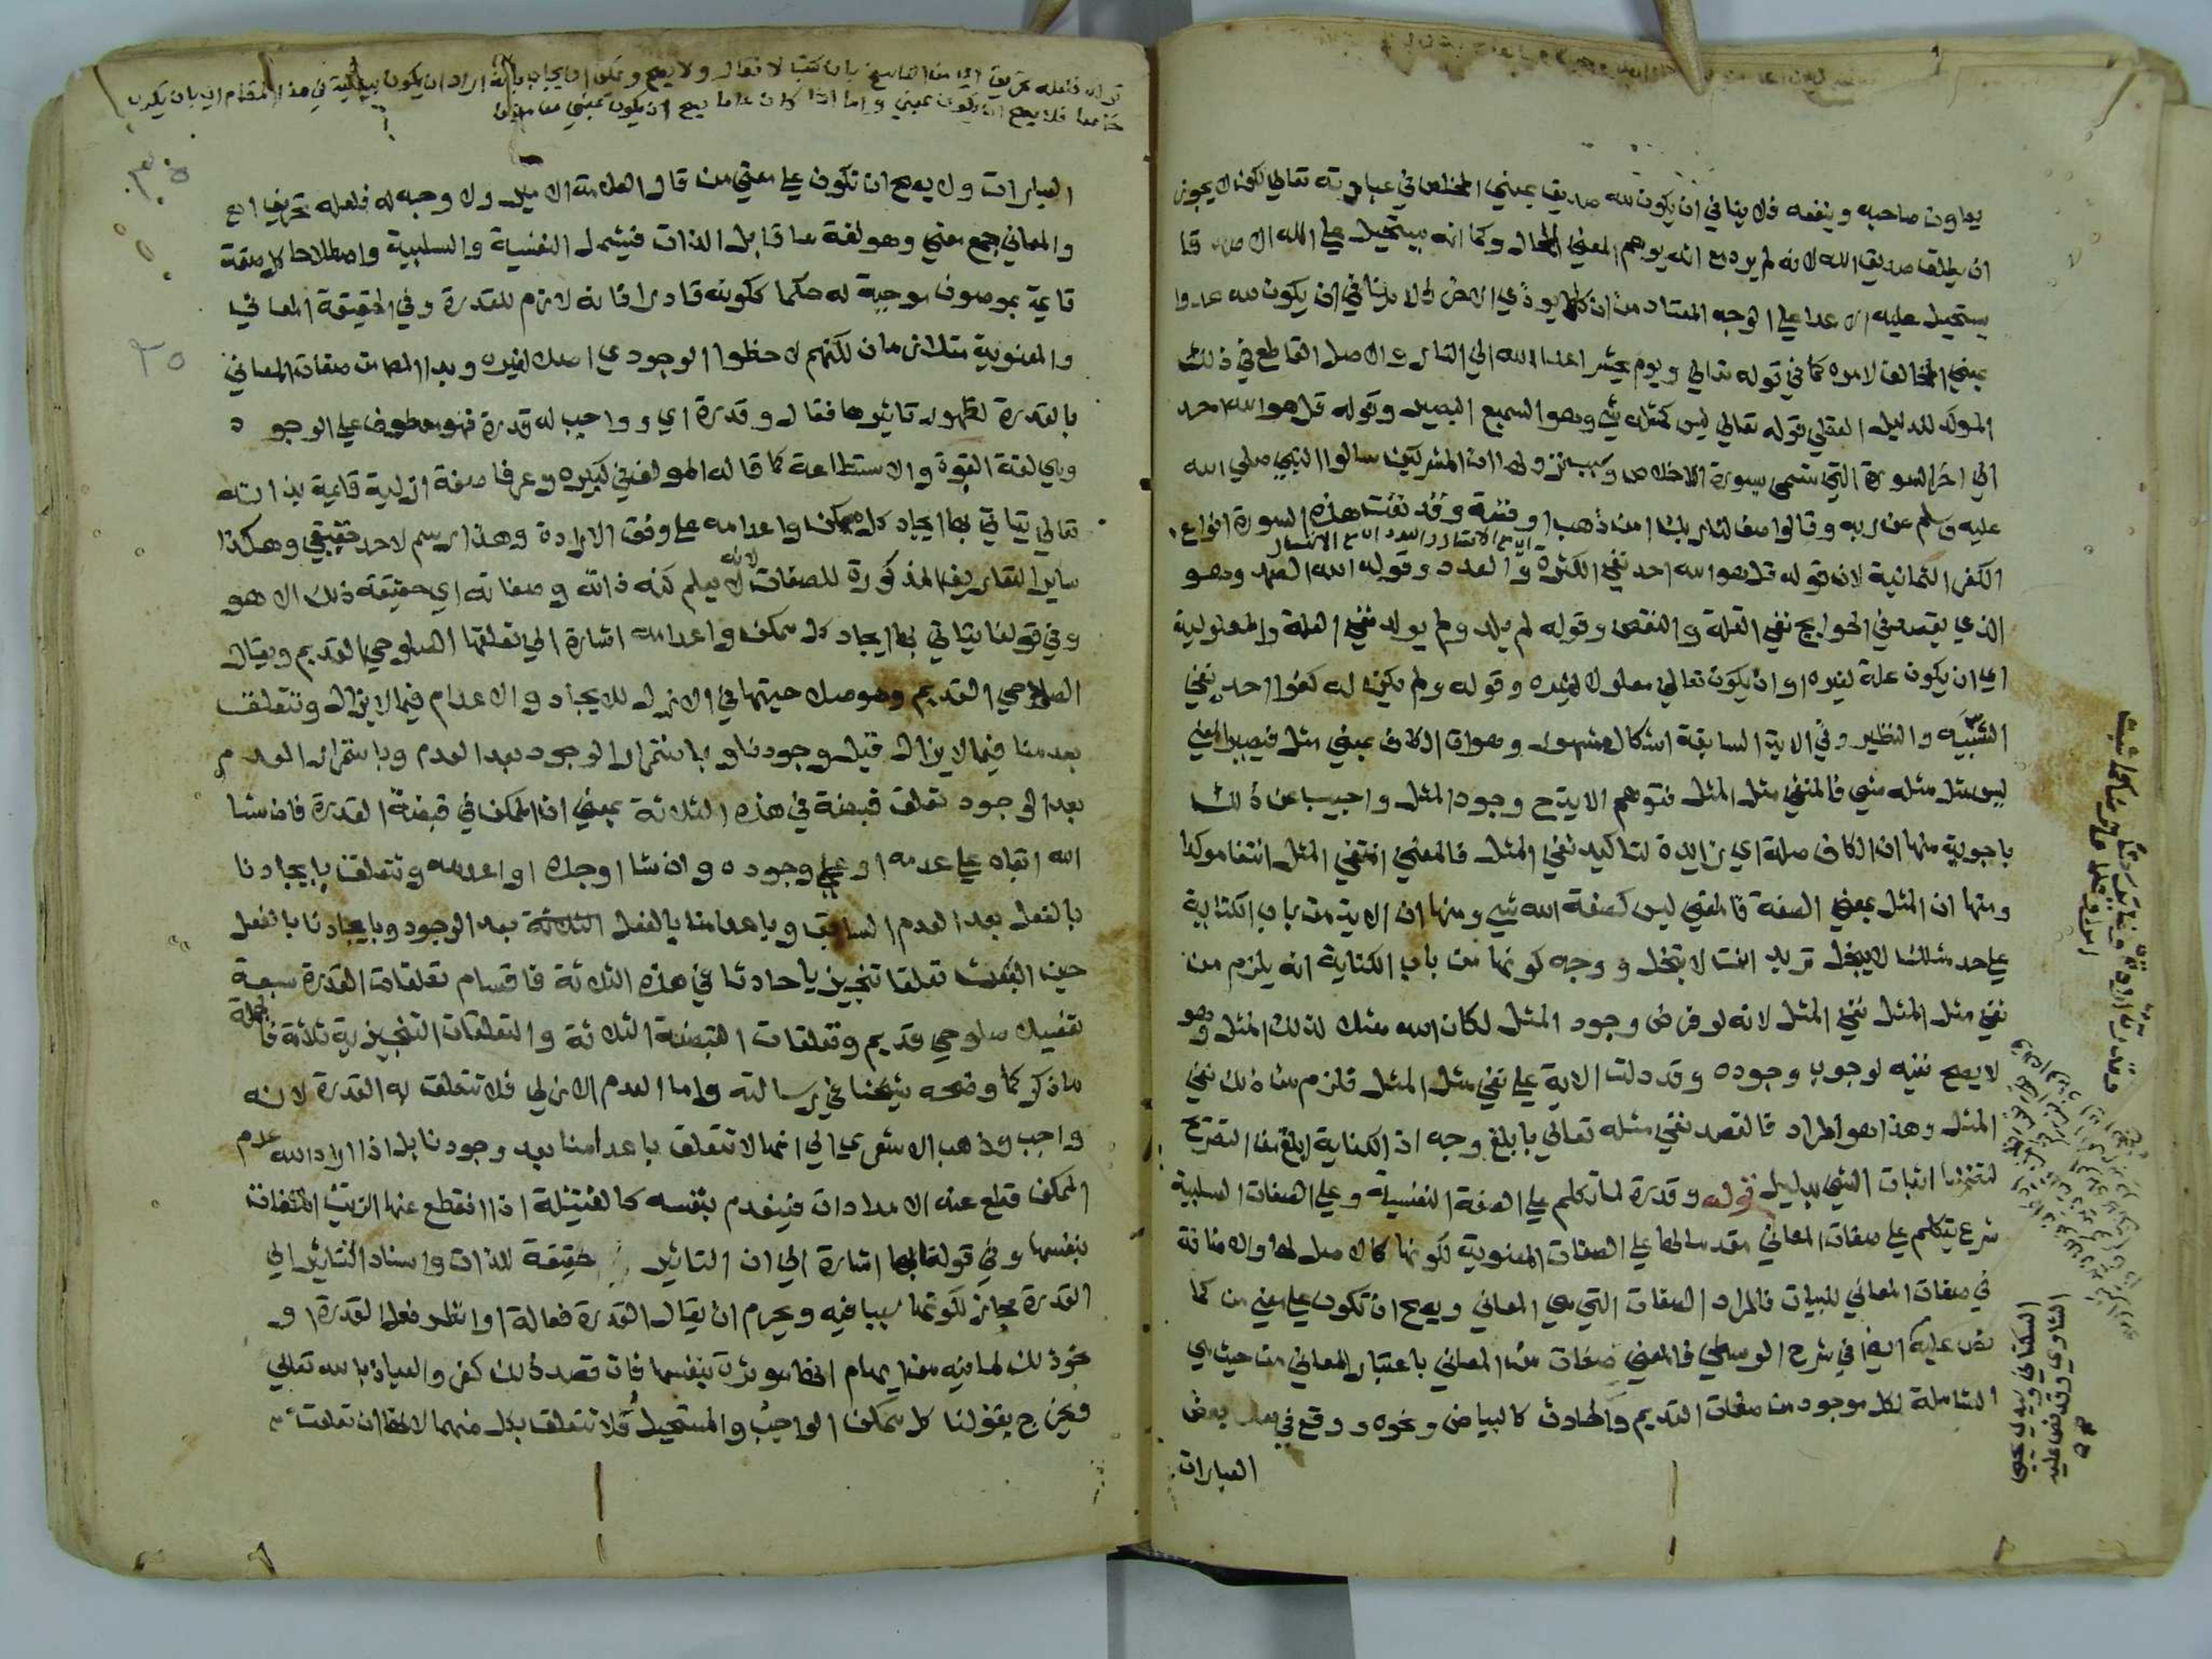 يعاون صاحبه وينفعه فلا ينافي ان يكون لله صديق بمعني المخلص في عبادته تعالي لكن لا يجوز
ان يطلق صديق الله لانه لم يرد مع انه يوهم المعني المحال وكما انه يستحيل علي الله الاصدقا
يستحيل عليه الاعدا علي الوجه المعتاد من ان كلا يوذي الاخر فلا ينافي ان يكون لله عدوا
بمعني المخالف لامره كما في قوله تعالي ويوم يحشر اعدا الله الي النار والاصل القاطع في ذلك
الموكد للدليل العقلي قوله تعالي ليس كمثله شي وهو السميع البصير وقوله قل هو الله احد
الي اخر السورة التي تسمي سورة الاخلاص وسبب نزولها ان المشركين سالوا النبي صلي الله
عليه وسلم عن ربه وقالوا صف لنا ربك امن ذهب او فضة وقد نفت هذه السورة انواع
الكفر الثمانية لان قوله قل هو الله احد نفي الكثرة والعدد وقوله الله الصمد وهو
الذي يقصد في الحوايج نفي القلة والنقص وقوله لم يلد ولم يولد نفي العلة والمعلولية
اي ان يكون علة لغيره او ان يكون تعالي معلولا لغيره وقوله ولم يكن له كفوا احد نفي
الشبيه والنظير وفي الاية السابقة اشكال مشهور وهو ان الكاف بمعني مثل فيصير المعني
ليس مثل مثله شي فالمنفي مثل المثل فتوهم الاية وجود المثل واجيب عن ذلك
باجوبة منها ان الكاف صلة اي زايدة لتاكيد نفي المثل فالمعني انتفي المثل انتفا موكدا
ومنها ان المثل بمعني الصفة فالمعني ليس كصفة الله شي ومنها ان الاية من باب الكناية
علي حد مثلك لا يبخل تريد انت لا تبخل ووجه كونها من باب الكناية انه يلزم من
نفي مثل المثل نفي المثل لانه لو فرض وجود المثل لكان الله مثلا لذلك المثل وهو
لا يصح نفيه لوجوب وجوده وقد دلت الاية علي نفي مثل المثل فلزم من ذلك نفي
المثل وهذا هو المراد فالقصد نفي مثله تعالي بابلغ وجه اذ الكناية ابلغ من التصريح
لتضمنها اثبات الشي بدليل قوله وقدرة لما تكلم علي الصفة النفسية وعلي الصفات السلبية
شرع يتكلم علي صفات المعاني مقدما لها علي الصفات المعنوية لكونها كالاصل لها والاضافة
في صفات المعاني للبيان فالمراد الصفات التي هي المعاني ويصح ان تكون علي معني من كما
نص عليه في شرح الوسطي فالمعني صفات من المعاني باعتبار المعاني من حيث هي
الشاملة لكل موجود من صفات القديم والحادث كالبياض ونحوه ووقع في بعض
العبارات
العبارات ولا يصح ان تكون علي معني من قال العلامة الامير ولا وجه له فلعله تحريف اهـ
والمعاني جمع معني وهو لغة ما قابل الذات فيشمل النفسية والسلبية واصطلاحا كل صفة
قايمة بموصوف موجبة له حكما ككونه قادرا فانه لازم للقدرة وفي الحقيقة المعاني
والمعنوية متلازمان لكنهم لاحظوا الوجودي اصلا لغيره وبدا المصنف صفات المعاني
بالقدرة لظهور تاثيرها فقال وقدرة اي وواجب له قدرة فهو معطوف علي الوجود
وهي لغة القوة والاستطاعة كما قاله المولف في كبيره وعرفا صفة ازلية قايمة بذاته
تعالي يتاتي بها ايجاد كل ممكن واعدامه علي وفق الارادة وهذا رسم لا حد حقيقي وهكذا
ساير التعاريف المذكورة للصفات لانه لا يعلم كنه ذاته وصفاته اي حقيقة ذلك الا هو
وفي قولنا يتاتي بها ايجاد كل ممكن واعدامه اشارة الي تعلقها الصلوحي القديم ويقال
الصلاحي القديم وهو صلاحيتها في الازل للايجاد والاعدام فيما لا يزال وتتعلق
بعدمنا فيما لا يزال قبل وجودنا وباستمرار الوجود بعد العدم وباستمرار العدم
بعد الوجود تعلق قبضة في هذه الثلاثة بمعني ان الممكن في قبضة القدرة فان شا
الله ابقاه علي عدمه او علي وجوده وان شا اوجده او اعدمه وتتعلق بايجادنا
بالفعل بعد العدم السابق وباعدامنا بالفعل الثلاثة بعد الوجود وبايجادنا بالفعل
حين البعث تعلقا تنجيزيا حادثا في هذه الثلاثة فاقسام تعلقات القدرة سبعة
تفصيلا صلوحي قديم وتعلقات القبضة الثلاثة والتعلقات التنجيزية ثلاثة فالجملة
ما ذكر كما وضحه شيخنا في رسالته واما العدم الازلي فلا تتعلق به القدرة لانه
واجب وذهب الاشعري الي انها لا تتعلق باعدامنا بعد وجودنا بل اذا اراد الله عدم
الممكن قطع عنه الامدادات فينعدم بنفسه كالفتيلة اذا انقطع عنها الزيت انطفات
بنفسها وفي قولنا بها اشارة الي ان التاثير حقيقة للذات واسناد التاثير الي
القدرة مجاز لكونها سببا فيه ويحرم ان يقال القدرة فعالة او انظر فعل القدرة او
نحو ذلك لما فيه من ايهام انها موثرة بنفسها فان قصد ذلك كفر والعياذ بالله تعالي
وخرج بقولنا كل ممكن الواجب والمستحيل فلا تتعلق بكل منهما لانها ان تعلقت